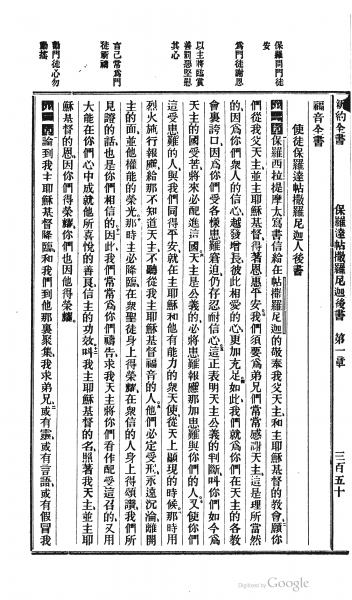 新約全書
保羅達帖撒羅尼迦後書 第一章
三百五十
福音全書
使徒保羅達帖撒羅尼迦人後書
保羅問門徒安
爲門徒謝恩
以主將臨賞善罰惡堅慰其心
言己常爲門徒祈禱
勸門徒心勿動搖
第一章 保羅西拉提摩太寫書信給在帖撒羅尼迦的敬奉我父天主、和主耶穌基督的教會、願你
們從我父天主、並主耶穌基督、得著恩惠平安、我們須要爲弟兄們常常感謝天主、這是理所當然
的、因爲你們衆人的信心越發增長、彼此相愛的心、更加充足、如此、我們就爲你們在天主的各教
會裏誇口、因爲你們受各樣患難窘迫、仍存忍耐信心、這正表明天主公義的判斷、叫你們如今爲
天主的國受苦、將來必配進這國、天主是公義的、必將患難報應那加患難與你們的人、又使你們
這受患難的人、與我們同得平安、就在主耶穌和他有能力的衆天使、從天上顯現的時候、那時用
烈火施行報應、給那不知道天主、不聽從我主耶穌基督福音的人、他們必定受刑、永遠沉淪、離開
主的面、並他權能的榮光、那時主必降臨、在衆聖徒身上得榮耀、在衆信的人身上得頌讚、我們所
見證的話、也是你們相信的、因此、我們常常爲你們禱告、求我天主將你們看作配受這召的、又用
大能在你們心中成就他所喜悅的善良、信主的功效、叫我主耶穌基督的名、照著我天主、並主耶
穌基督的恩、因你們得榮耀、你們也因他得榮耀、
第二章 論到我主耶穌基督降臨、和我們到他那裏聚集、我求弟兄、或有靈、或有言語、或有假冒我
Digitized by Google